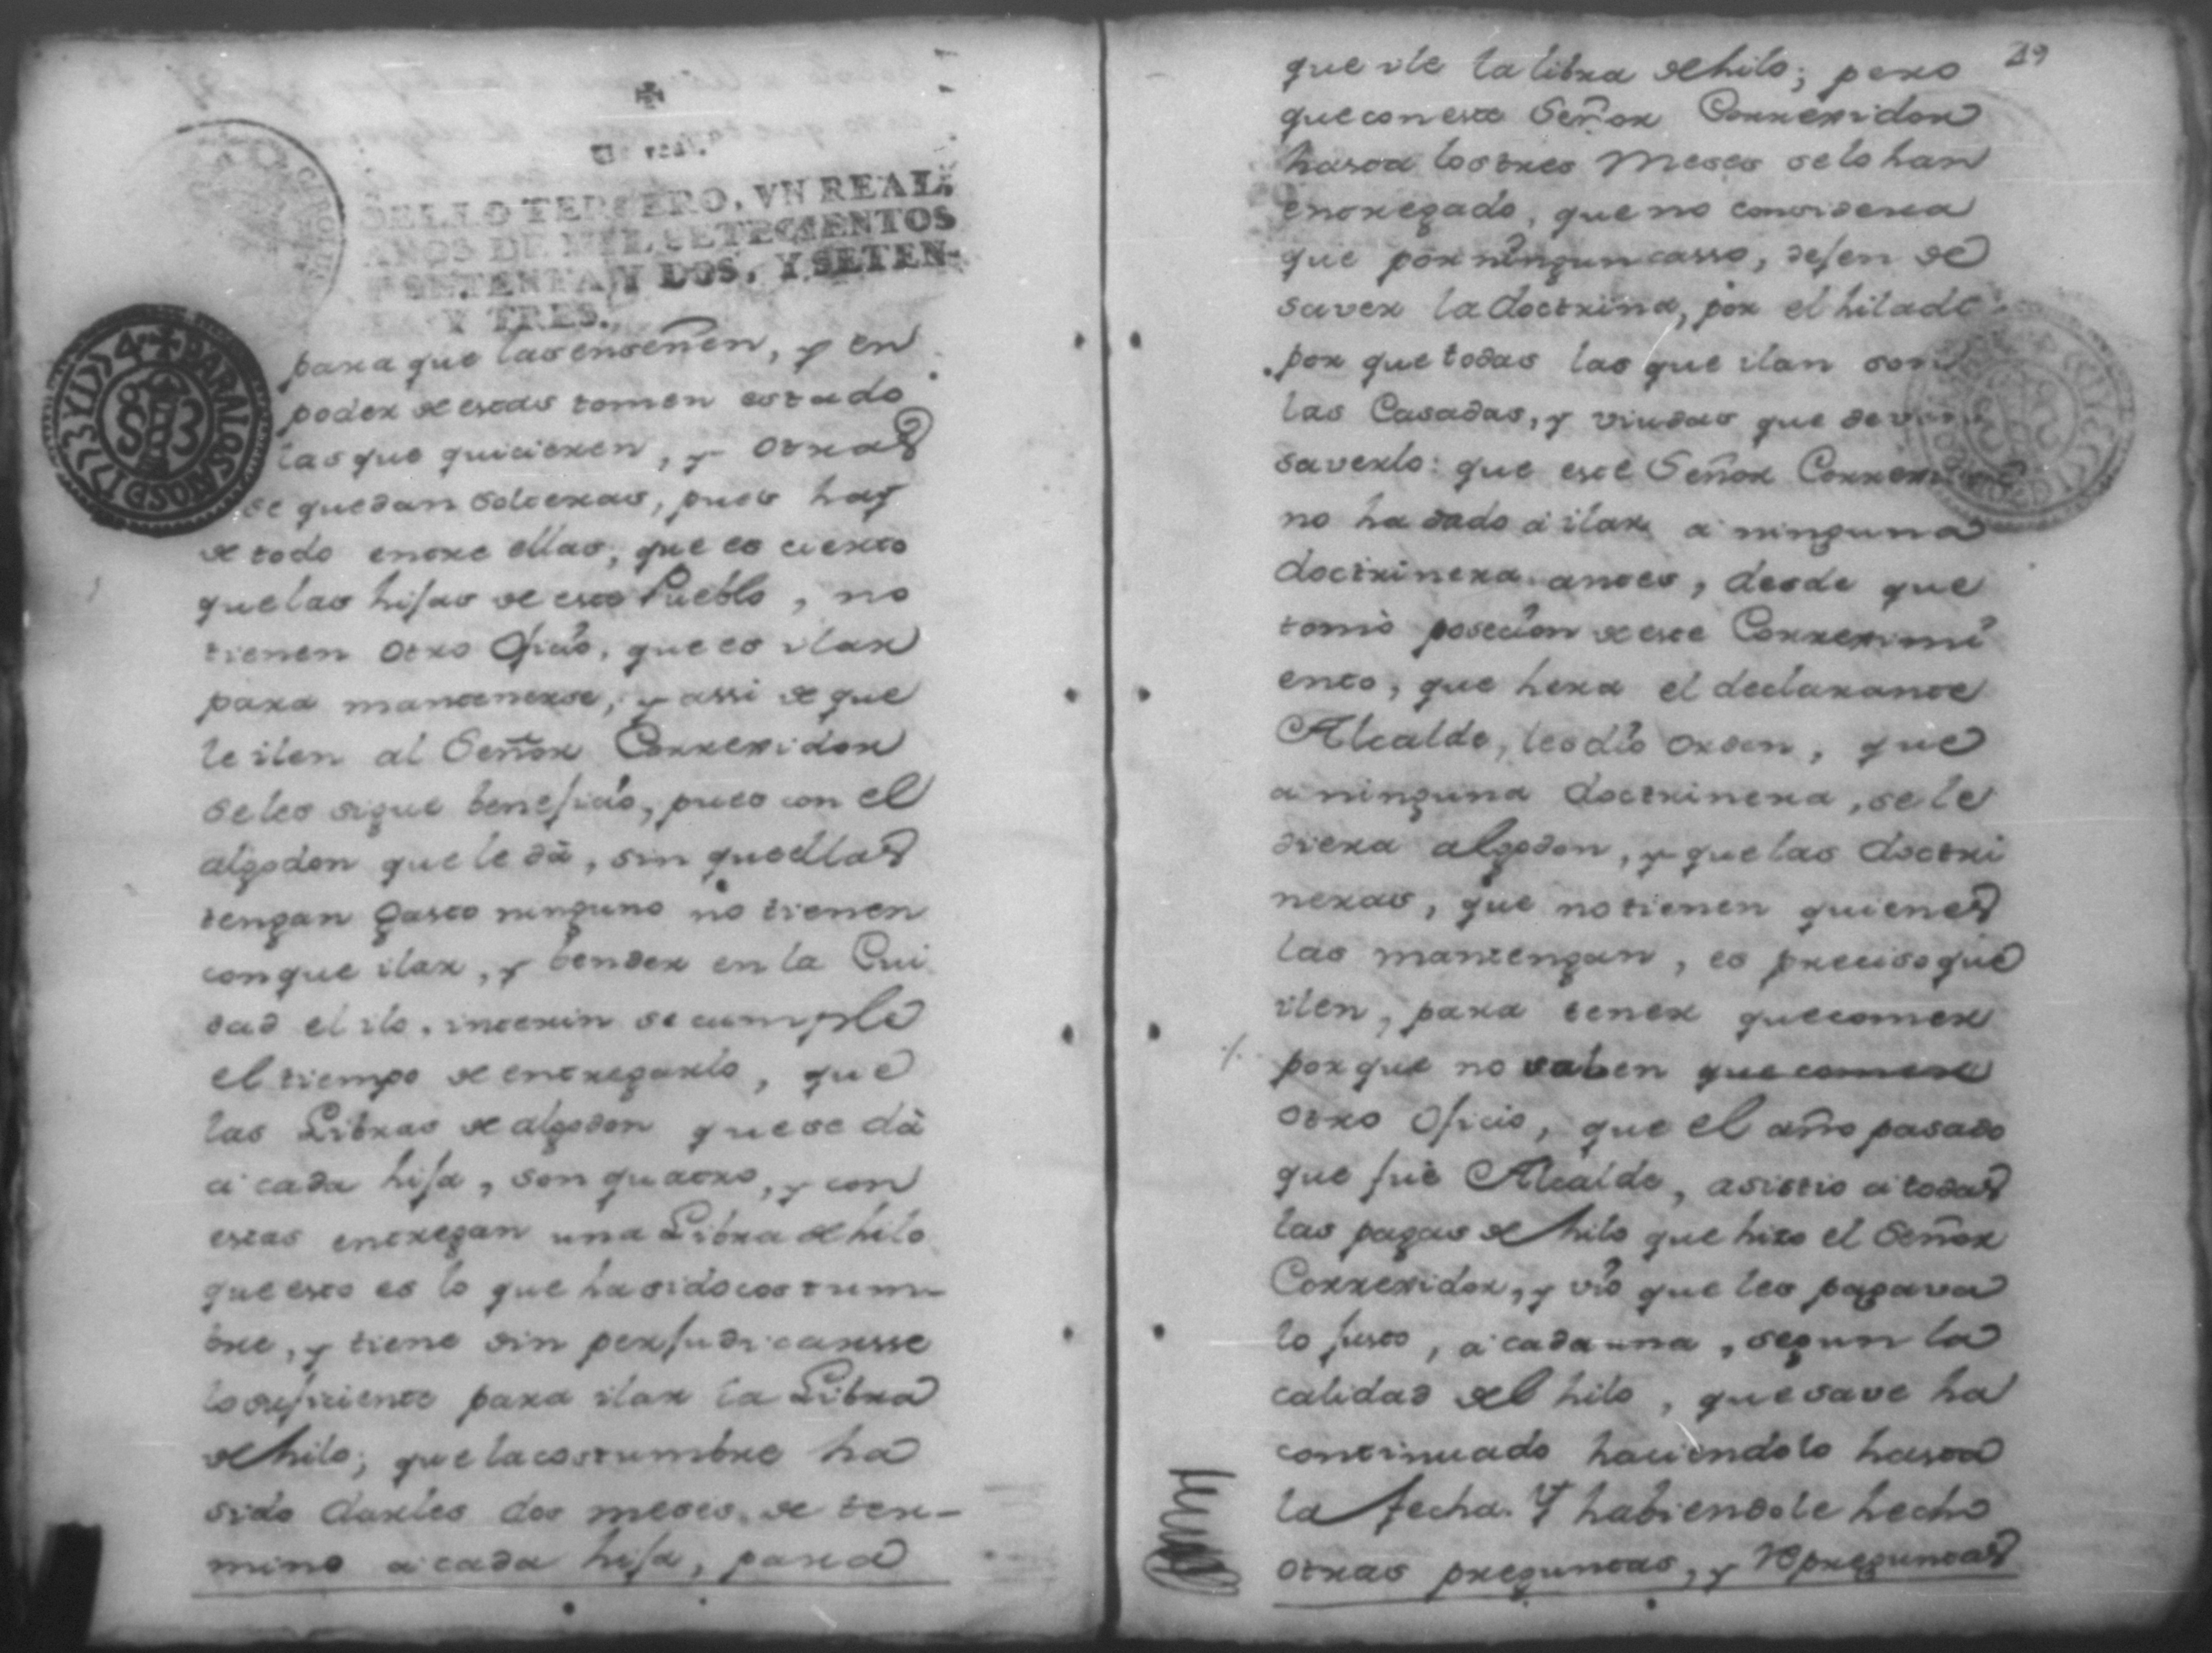 Un real.
SELLO TERCERO, VN REAL,
AÑOS DE MIL SETECIENTOS
SETENTA Y DOS, Y SETEN-
Y TRES.
PARA LOS AÑOS D 1773 Y 1774
para que las enseñen, y en
poder de estas tomen estado
las que quicieren, y otras
se quedan solteras, pues hay
de todo entre ellas, que es cierto
que las hijas de este Pueblo, no
tienen otro Oficio, que es ilar
para mantenerse, y assi de que
le ilen al Señor Correxidor
se les sigue beneficio, pues con el
algodon que le dà, sin que ellas
tengan gasto ninguno no tienen
con que ilar, y bender en la Ciu
dad el ilo, interin se cumple
el tiempo de entregarlo, que
las Libras de algodon que se dà
à cada hija, son quatro, y con
estas entregan una Libra de hilo
que esto es lo que ha sido costum-
bre, y tiene sin perjudicarsse
lo suficiente para ilar la Libra
de hilo; que la costumbre ha
sido darles dos meses de ter-
mino à cada hija, para
29
que ile la libra de hilo; pero
que con este Señor Correxidor
hasta los tres Meses se lo han
entregado, que no considera
que por ningun casso, dejen de
saver la doctrina, por el hilado
por que todas las que ilan son
las Casadas, y viudas que deven
saverlo: que este Señor Correxidor
no ha dado à ilar à ninguna
doctrinera antes, desde que
tomò posecion de este Correximi
ento, que hera el declarante
Alcalde, les diò orden, que
a ninguna doctrinera, se le
diera algodon, y que las doctri
neras, que no tienen quienes
las mantengan, es preciso que
ilen, para tener que comer
por que no saben que comer
otro Oficio, que el año pasado
que fuè Alcalde, asistio à todas
las pagas de hilo que hizo el Señor
Correxidor, y viò que les pagava
lo justo, à cada una, segun la
calidad del hilo, que save ha
continuado haciendolo hasta
la fecha. Y habiendole hecho
otras preguntas, y repreguntas